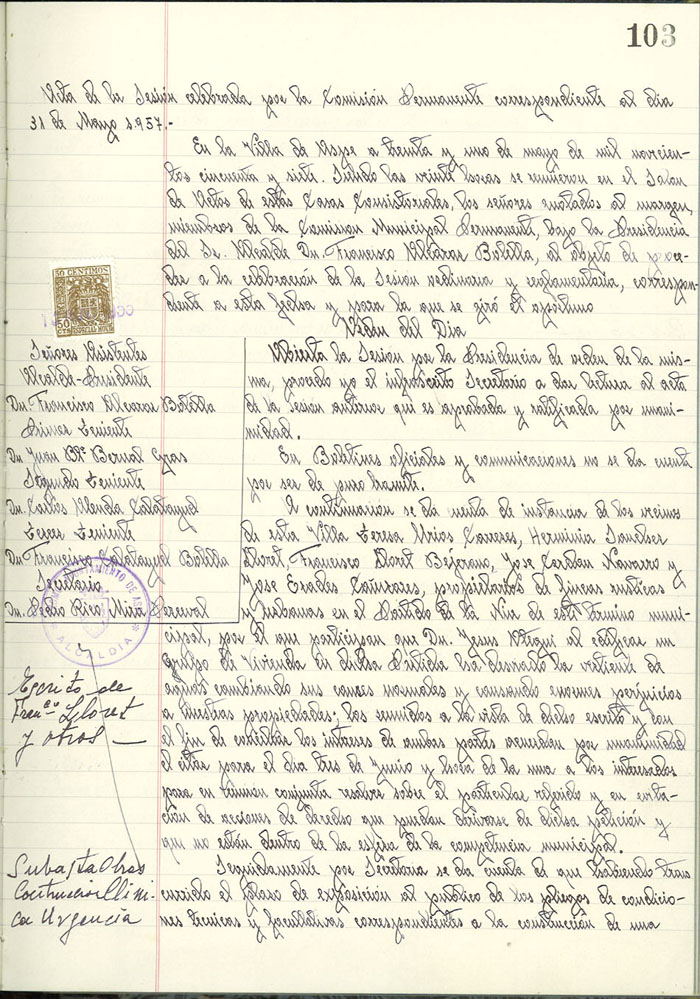 103
Acta de la Sesión celebrada por la Comisión Permanente correspondiente al día
31 de Mayo 1.957.-
En la Villa de Aspe a treinta y uno de mayo de mil novecien-
tos cincuenta y siete. Siendo las veinte horas se reunieron en el Salon
de Actos de estas Casas Consistoriales, los señores anotados al margen,
miembros de la Comision Municipal Permanente, bajo la Presidencia
del Sr. Alcalde Dn. Francisco Alcaraz Botella, al objeto de proce-
der a la celebración de la Sesión ordinaria y reglamentaria, correspon-
diente a esta fecha y para la que se giró el oportuno
Orden del Dia
50 CENTIMOS
50 CTS
ESPECIAL MOVIL
Señores Asistentes
Alcalde-Presidente
Dn. Francisco Alcaraz Botella
Primer Teniente
Dn. Juan Btª Bernal
Segundo Teniente
Dn. Carlos Calatayud
Tercer Teniente
Dn. Francisco Calatayud Botella
Secretario
Dn. Pedro Rico Mira Perceval
AYUNTAMIENTO DE ASPE
ALCALDIA
Abierta la Sesión por la Presidencia de orden de la mis-
ma, procedo yo el infrascrito Secretario a dar lectura al acta
de la sesión anterior que es aprobada y ratificada por unani-
midad.
En Boletines oficiales y comunicaciones no se da cuenta
por ser de puro tramite.
A continuación se da cuenta de instancia de los vecinos
de esta Villa Teresa Urios Caceres, Herminia Sanchez
Lloret, Francisco Lloret Bejerano, Jose Cerdan Navarro y
Jose Erades Cañizares, propietarios de fincas rusticas
y urbanas en el Partido de la Nia de este termino muni-
cipal, por el que participan que Dn. Jesus al edificar un
Grupo de Vivienda en dicha Partida ha desviado la vertiente de
aguas cambiando sus cauces normales y causando enormes perjuicios
a nuestras propiedades; los reunidos a la vista de dicho escrito y con
el fin de conciliar los intereses de ambas partes acuerdan por unanimidad
el citar para el día tres de Junio y hora de la una a los interesados
para en reunión conjunta resolver sobre el particular referido y en evita-
ción de acciones de derecho que puedan derivarse de dicha petición y
que no están dentro de la esfera de la competencia municipal.
Escrito de
Franco Lloret
y otros —
Seguidamente por Secretaria se da cuenta el que habiendo trans
currido el plazo de exposición al público de los pliegos de condicio-
nes tecnicas y facultativas correspondientes a la construcción de una
Subasta Obras
Construccion Clini-
ca Urgencia